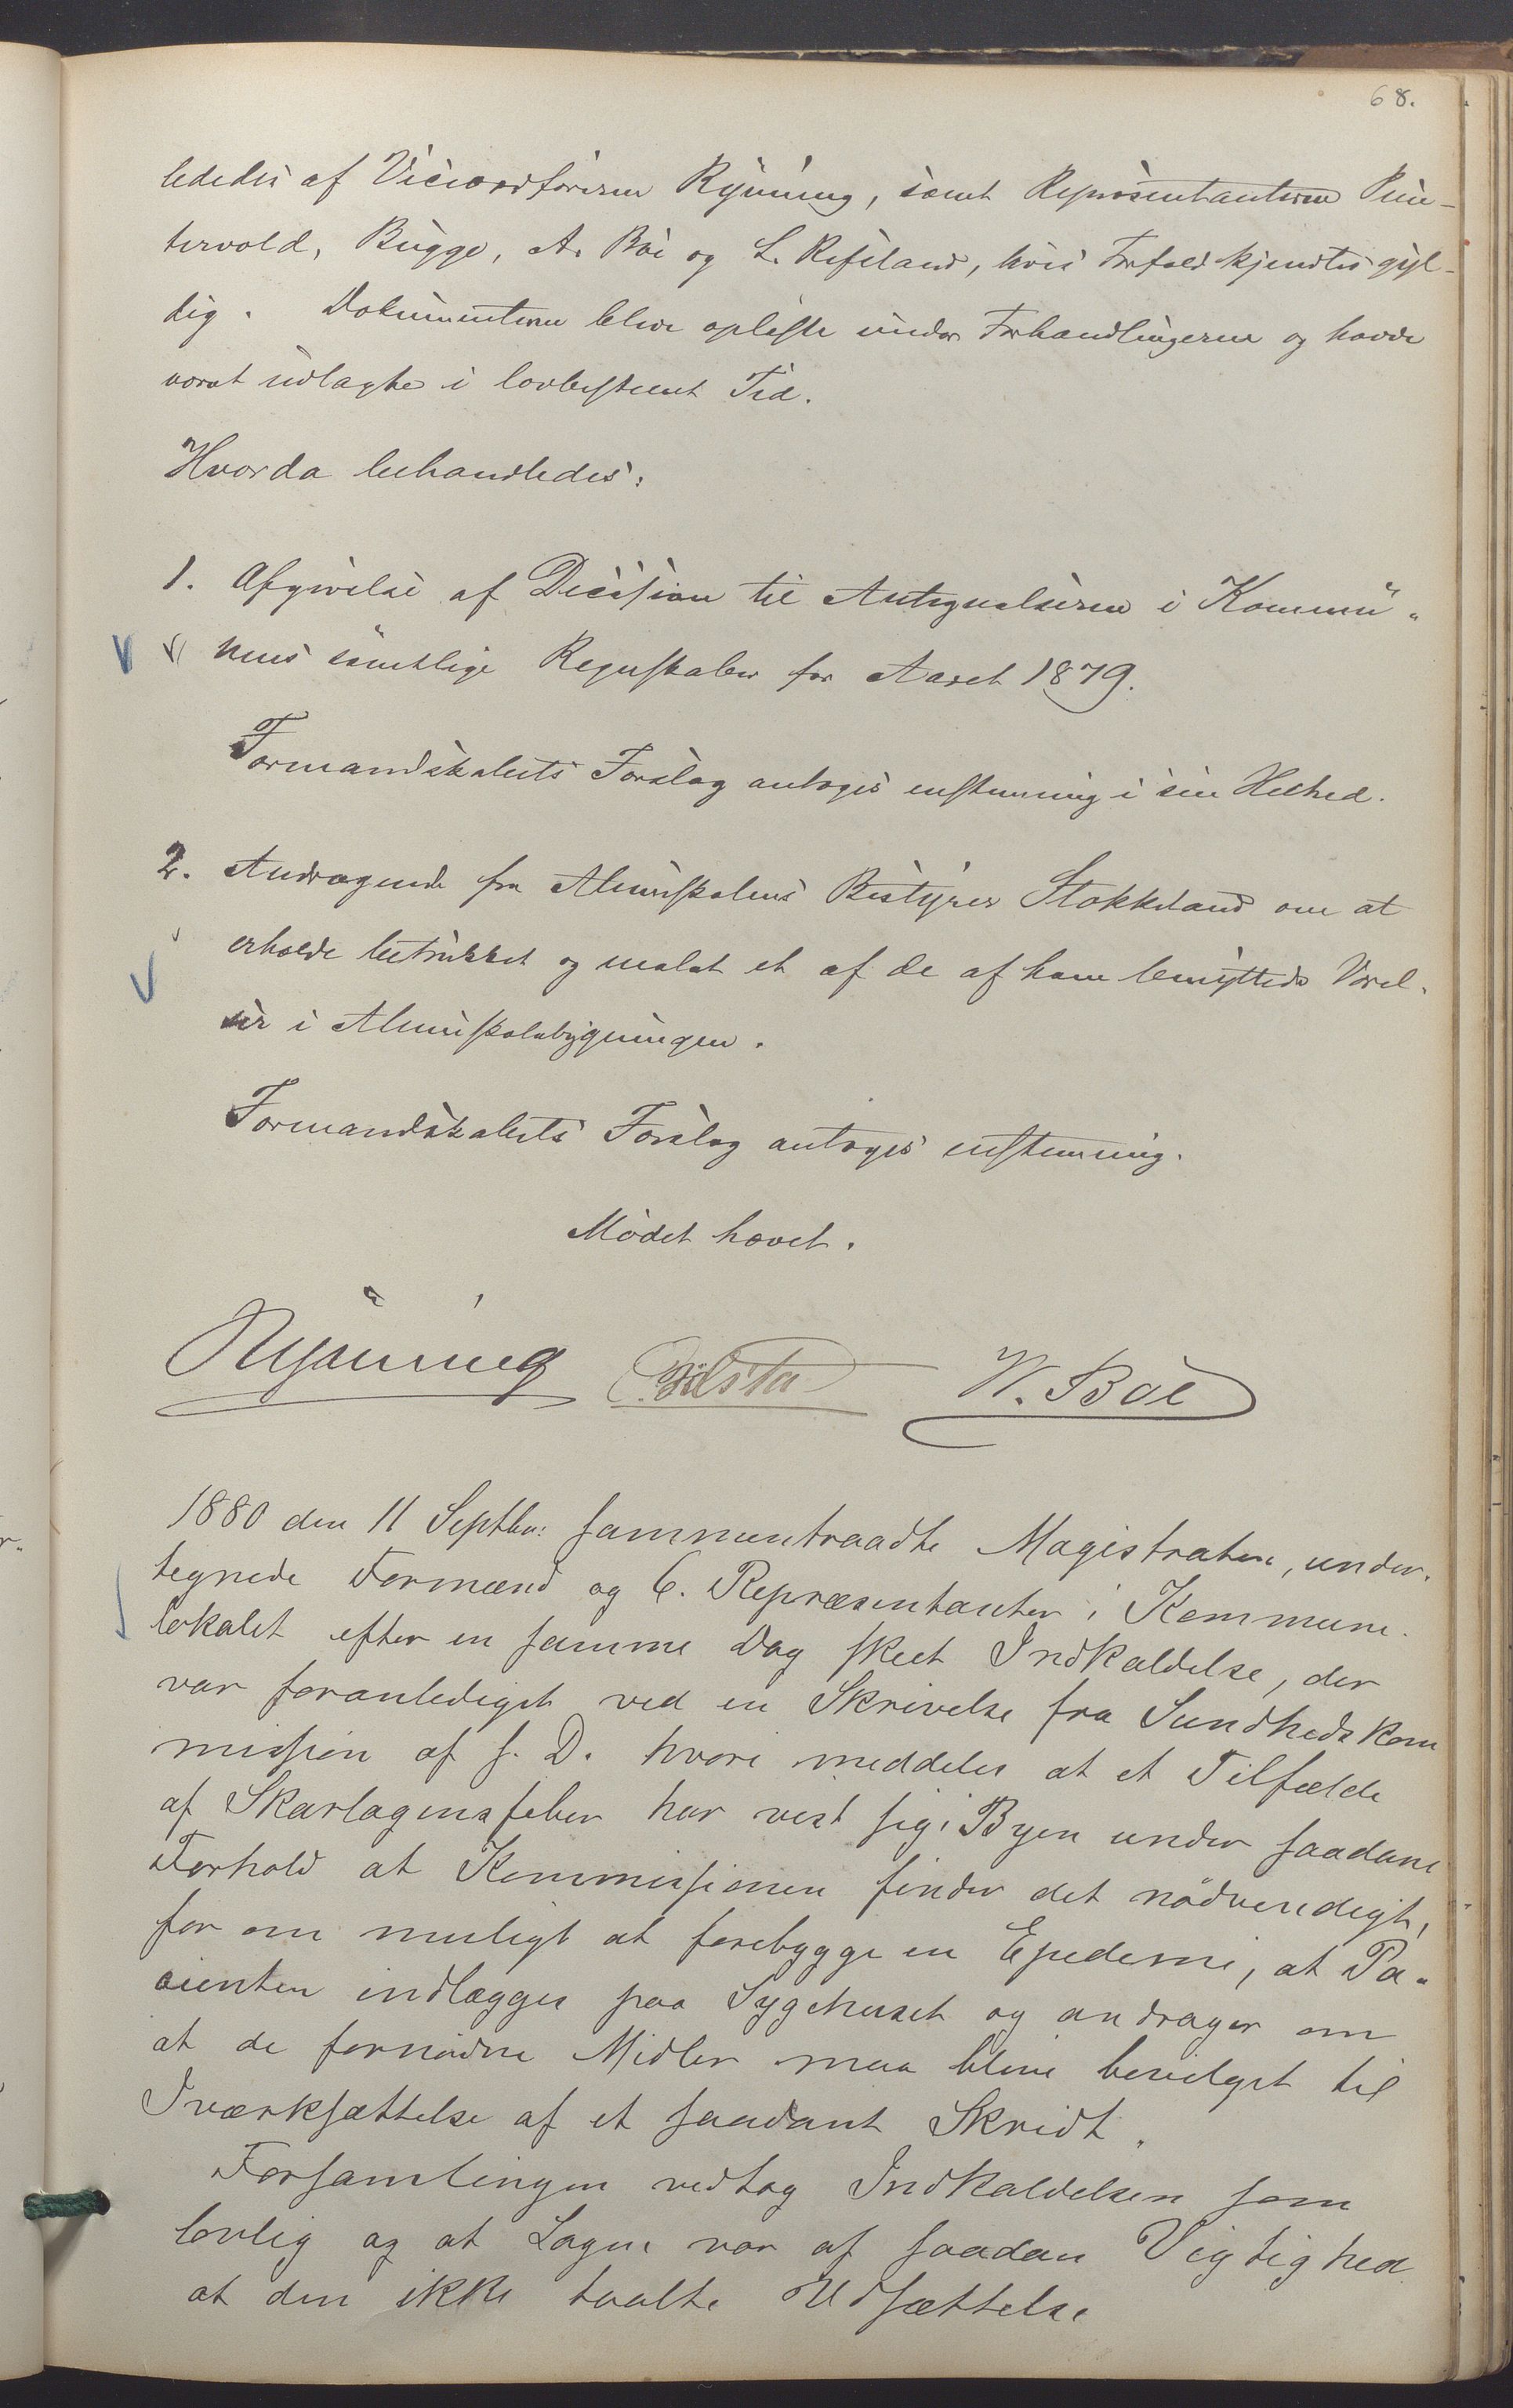 68.
lededes af Viceordföreren Rynning, samt Repræsentanterne Pein-
tervold, Bugge, A. Bøe og L. Refsland, hvis Forfald kjendtes gyl-
dig. Dokumenterne bleve oplæste under Forhandlingerne og havde
været udlagte i lovbestemt Tid.
Hvorda behandledes:
1. Afgivelse af Decision til Antegnelserne i Kommu-
nens samtlige Regnskaber for Aaret 1879.
Formandskabets Forslag antoges enstemmig i sin Helhed.
2. Andragende fra Almueskolens Bestyrer Stokkeland om at
erholde betrukket og malet et af de af ham benyttede Værel-
ser i Almueskolebygningen.
Formandskabets Forslag antoges enstemmig.
Mödet hævet.
Rynning W. Böe
1880 den 11 Septbr: sammentraadte Magistraten, under-
tegnede Formænd og 6. Repræsentanter i Kommune-
lokalet efter en samme Dag skeet Indkaldelse, der
var foranlediget ved en Skrivelse fra Sundhedskom
mission af s. D. hvori meddeles at et Tilfælde
af Skarlagensfeber har vist sig i Byen under saadane
Forhold at Kommissionen finder det nödvendigt,
for om muligt at forebygge en Epedemi, at Pa-
cienten indlægges paa Sygehuset og andrager om
at de fornödne Midler maa blive bevilget til
Iværksættelse af et saadant Skridt.
Forsamlingen vedtog Indkaldelsen som
lovlig og at Sagen var af saadan Vigtighed
at den ikke taalte Udsættelse